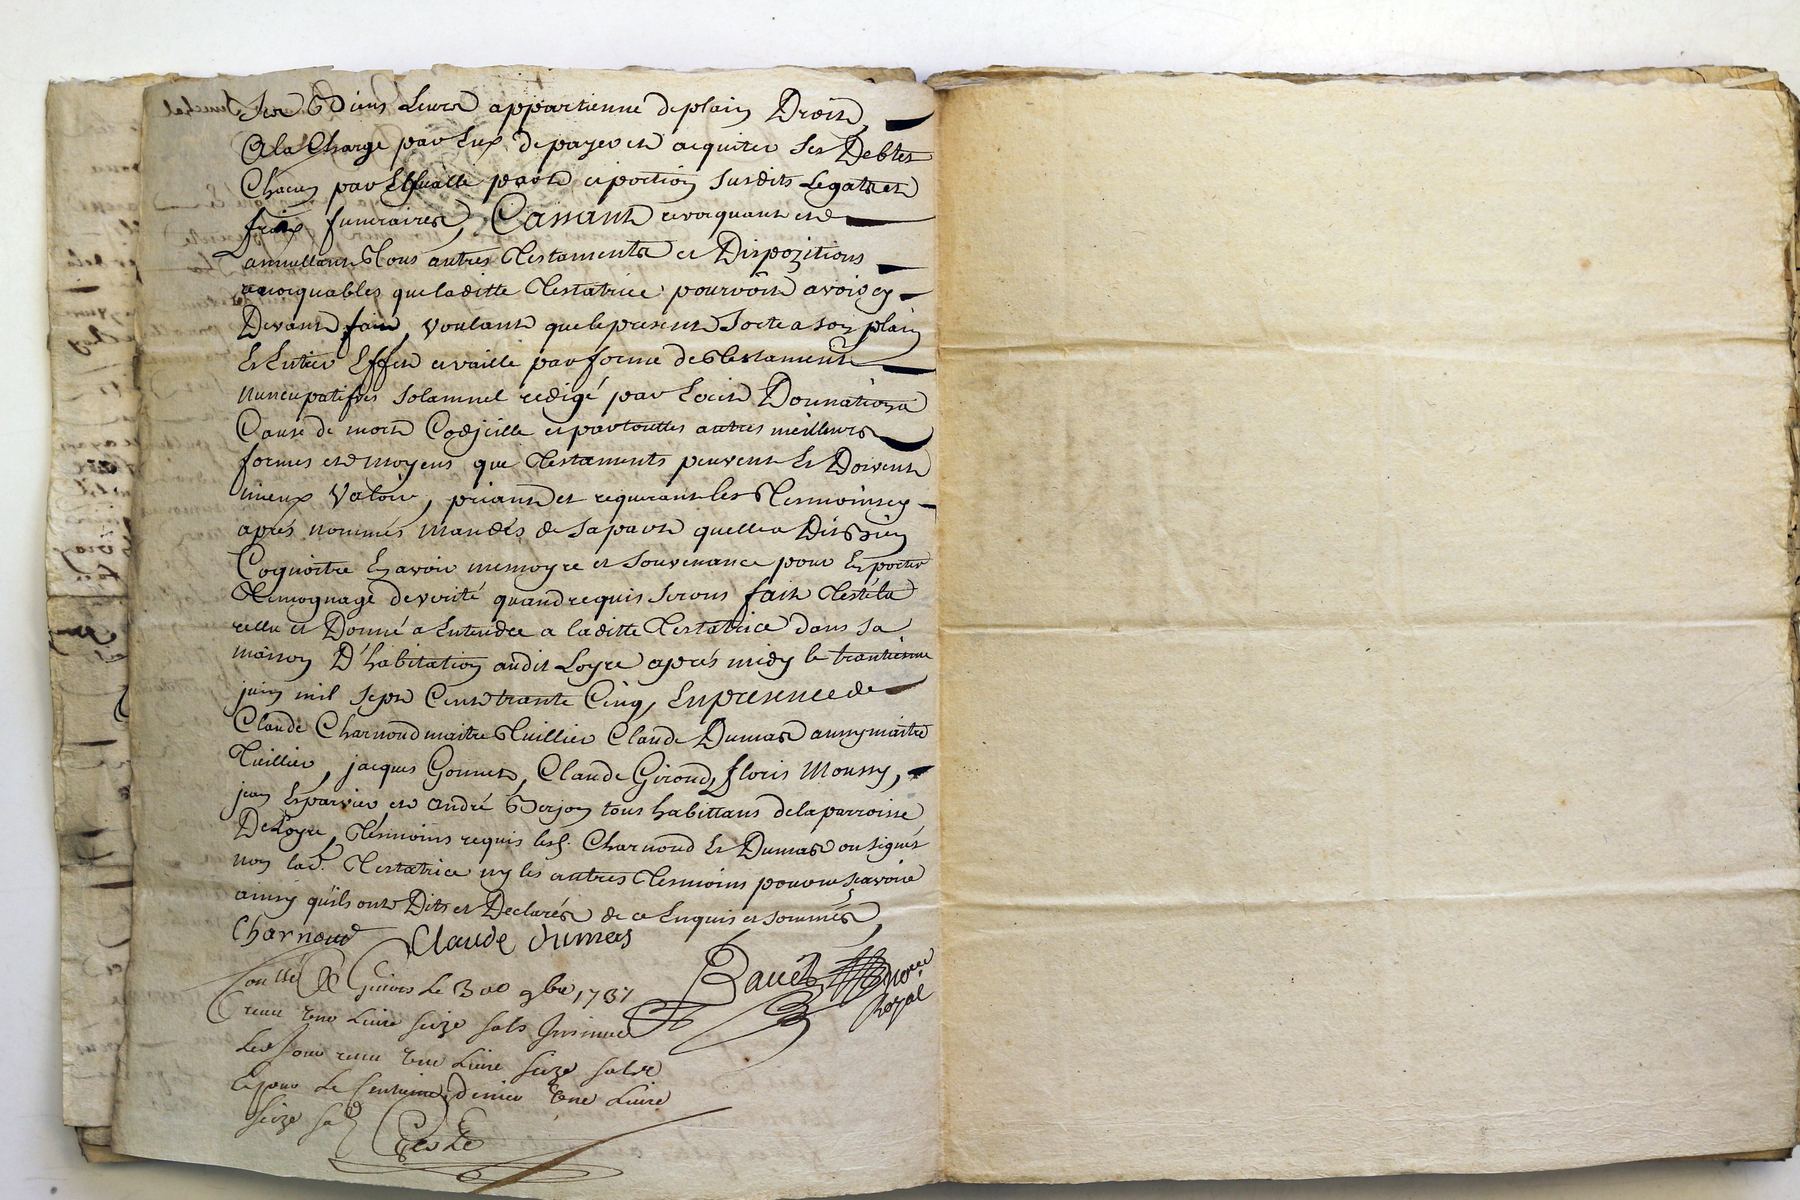 Ses Biens Leurs appartienne de plain Droit,
A la Charge par Eux de payer et acquiter ses Debtes
Chacun par Esgualle part et portion Susdits Legats et
fraix funeraires, Cassant revocquant et
annullant Tous autres Testaments et Dispozitions
revocquables que laditte Testatrice pourroit avoir cy
Devant fait, voulant que le present Sorte a son plain
Et Entier Effet et vaille par forme de Testament
Nuncupatif Solamnel redigé par Ecrit Donnation a
Cause de mort Codjcille et par touttes autres meilleurs
formes et moyens que Testaments peuvent Et Doivent
mieux Valoir, priant et requerant les Tesmoins cy
apres nommés mandés de sa part quelle a Dit Bien
Cognoitre En avoir memoyre et souvenance pour En porter
Temognage de verité quand requis Seront fait Testé la
relu et Donné a Entendre a laditte Testatrice dans sa
maison D'habitation audit Loyre aprés midy le trantiesme
juin mil sept Cent trante Cinq, En presence de
Claude Charnoud maitre Tuillier Claude Dumas aussy maitre
Tuillier, jacques Gonnet, Claude Giroud, floris Moussy,
jean Esparvier et andré Berjon tous habittans de la parroisse
De Loyre, Tesmoins requis lesd. Charnoud Et Dumas ont signés
non lad. Testatrice ny les autres Tesmoins pour ne sçavoir
ainsy qu'ils ont Dits et Declarés de ce Enquis et sommés,
Charnoud Claude dumas
Royal
Conllé A Givors Le 30e 9bre 1737
reçu une Livre seize sols Insinué
Led Jour reçu une Livre seize sols
Et pour Le Centieme denier une Livre
seize sols